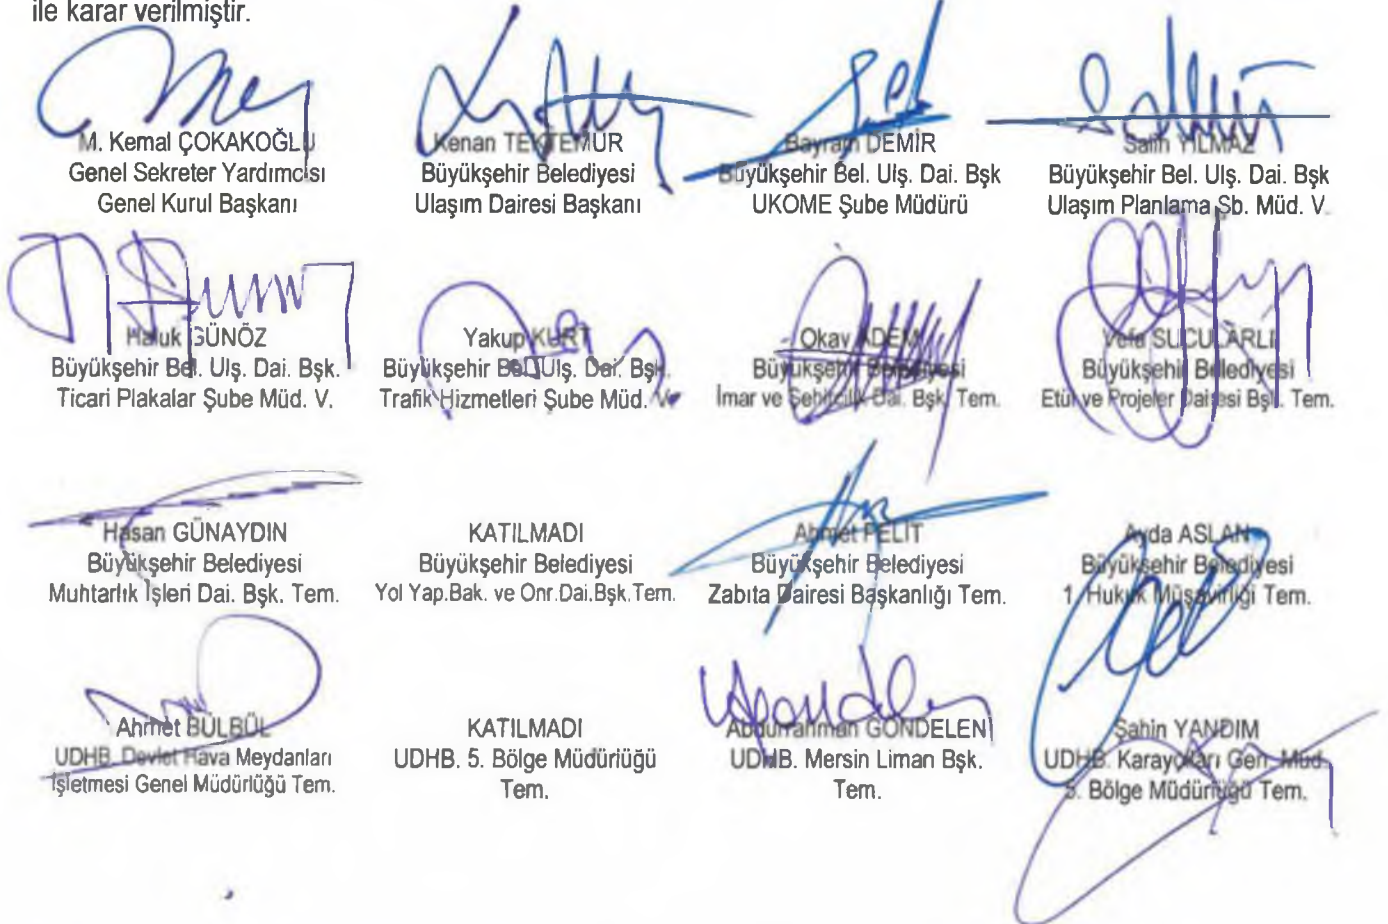 ile karar verilmiştir.
M. Kemal ÇOKAKOĞLU
Genel Sekreter Yardımcısı
Genel Kurul Başkanı
Kenan TEKTEMUR
Büyükşehir Belediyesi
Ulaşım Dairesi Başkanı
Bayram DEMİR
Büyükşehir Bel. Ulş. Dai. Bşk
UKOME Şube Müdürü
Salih YILMAZ
Büyükşehir Bel. Ulş. Dai. Bşk
Ulaşım Planlama Şb. Müd. V.
Haluk GÜNÖZ
Büyükşehir Bel. Ulş. Dai. Bşk.
Ticari Plakalar Şube Müd. V.
Yakup KURT
Büyükşehir Bel. Ulş. Dai. Bşk.
Trafik Hizmetleri Şube Müd. V.
Okay ADEM
Büyükşehir Belediyesi
İmar ve Şehircilik Dai. Bşk. Tem.
Vefa SUCULARLI
Büyükşehir Belediyesi
Etüt ve Projeler Dairesi Bşk. Tem.
Hasan GÜNAYDIN
Büyükşehir Belediyesi
Muhtarlık İşleri Dai. Bşk. Tem.
KATILMADI
Büyükşehir Belediyesi
Yol Yap.Bak. ve Onr.Dai.Bşk.Tem.
Ahmet PELİT
Büyükşehir Belediyesi
Zabıta Dairesi Başkanlığı Tem.
Ayda ASLAN
Büyükşehir Belediyesi
1. Hukuk Müşavirliği Tem.
Ahmet BÜLBÜL
UDHB. Devlet Hava Meydanları
İşletmesi Genel Müdürlüğü Tem.
KATILMADI
UDHB. 5. Bölge Müdürlüğü
Tem.
Abdurrahman GÖNDELENİ
UDHB. Mersin Liman Bşk.
Tem.
Şahin YANDIM
UDHB. Karayolları Gen. Müd.
5. Bölge Müdürlüğü Tem.